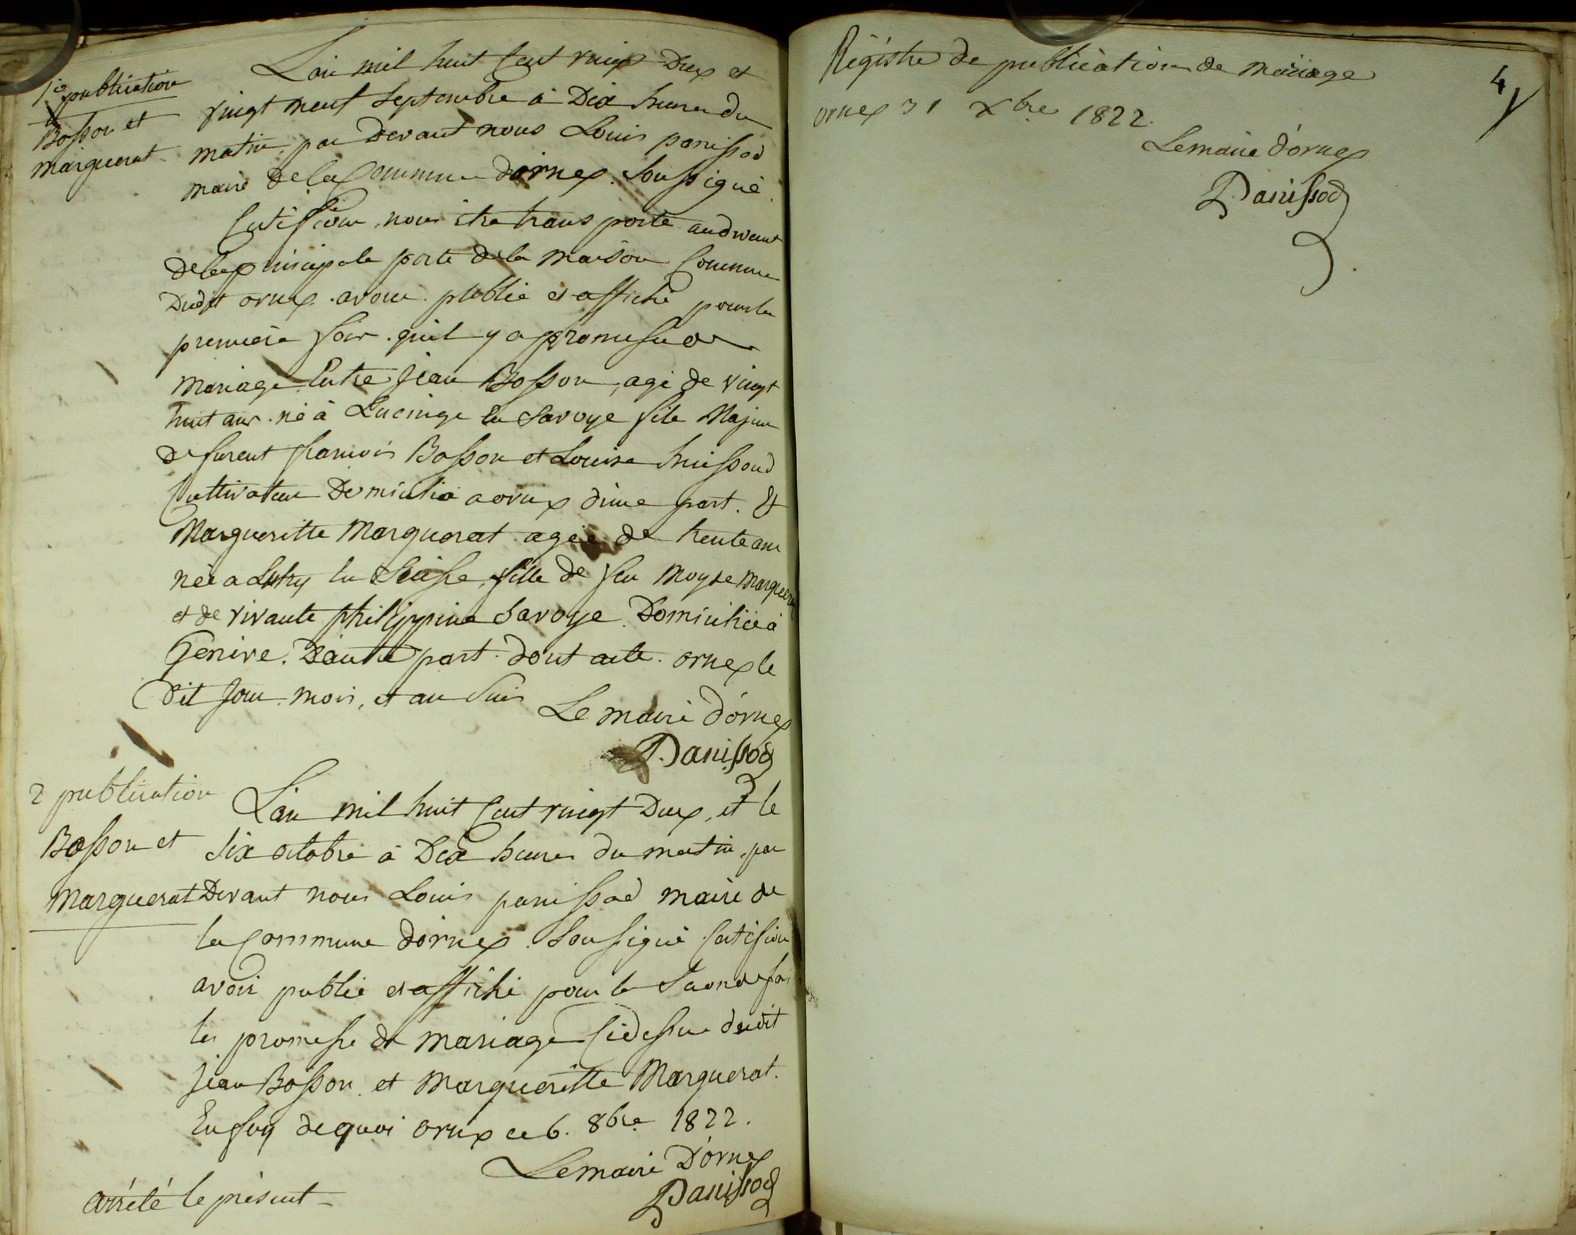 1re publication
Bosson et
Marguerat
L'an mil huit Cent vingt Deux et
vingt neuf Septembre à Dix heures du
matin, par Devant nous Louis panissod
maire De la Commune d'ornex. Soussigné
Certiffions, nous être transporté audevant
de la principale porte de la Maison Commune
Dudit ornex. avoir publié et affiché pour la
première fois. qu'il y a promesse de
Mariage Entre Jean Bosson, agé de vingt
huit ans. né à Lucinge En Savoye fils Majeur
de François Bosson et Louise
Cultivateur Domicilié a ornex d'une part. Et
Margueritte Marguerat agée de trente ans
née a Lutry En Suisse, fille de feu Moyse Marguerat
et de vivante philippine Savoye Domiciliée à
Genève. D'autre part. dont acte. ornex le
Dit Jour. mois, et an Le maire d'ornex
Panissod
2 publication
Bosson et
Marguerat
L'an mil huit Cent vingt Deux, et le
Six octobre à Dix heures du matin, par
Devant nous Louis panissod maire de
la Commune d'ornex. Soussigné Certifions
avoir publié et affiché pour la Seconde fois
les promesse de mariage Cidessus dudit
Jean Bosson. et Margueritte Marguerat.
En foy de quoi ornex ce 6. 8bre 1822.
Le maire D'ornex
Panissod
arrété le présent
Régistre de publication de mariage
ornex 31 Xbre 1822.
Le maire d'ornex
Panissod
4